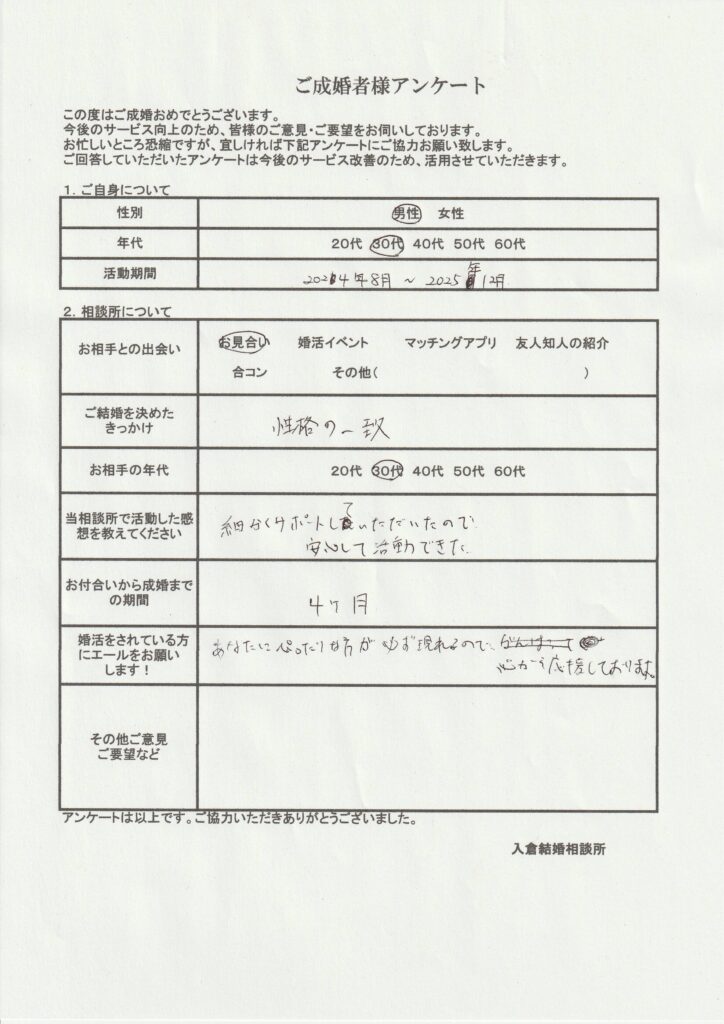 ご成婚者様アンケート
この度はご成婚おめでとうございます。
今後のサービス向上のため、皆様のご意見・ご要望をお伺いしております。
お忙しいところ恐縮ですが、宜しければ下記アンケートにご協力お願い致します。
ご回答していただいたアンケートは今後のサービス改善のため、活用させていただきます。
1. ご自身について
性別 男性 女性
年代 20代 30代 40代 50代 60代
活動期間 2024年8月 ~ 2025年12月
2. 相談所について
お相手との出会い お見合い 婚活イベント マッチングアプリ 友人知人の紹介
合コン その他( )
ご結婚を決めた
きっかけ
性格の一致
お相手の年代 20代 30代 40代 50代 60代
当相談所で活動した感
想を教えてください
細かくサポートしていただいたので
安心して活動できた
お付合いから成婚まで
の期間
4ヶ月
婚活をされている方
にエールをお願い
します!
あなたにぴったりな方が必ず現れるので、
心から応援しております。
その他ご意見
ご要望など
アンケートは以上です。ご協力いただきありがとうございました。
入倉結婚相談所